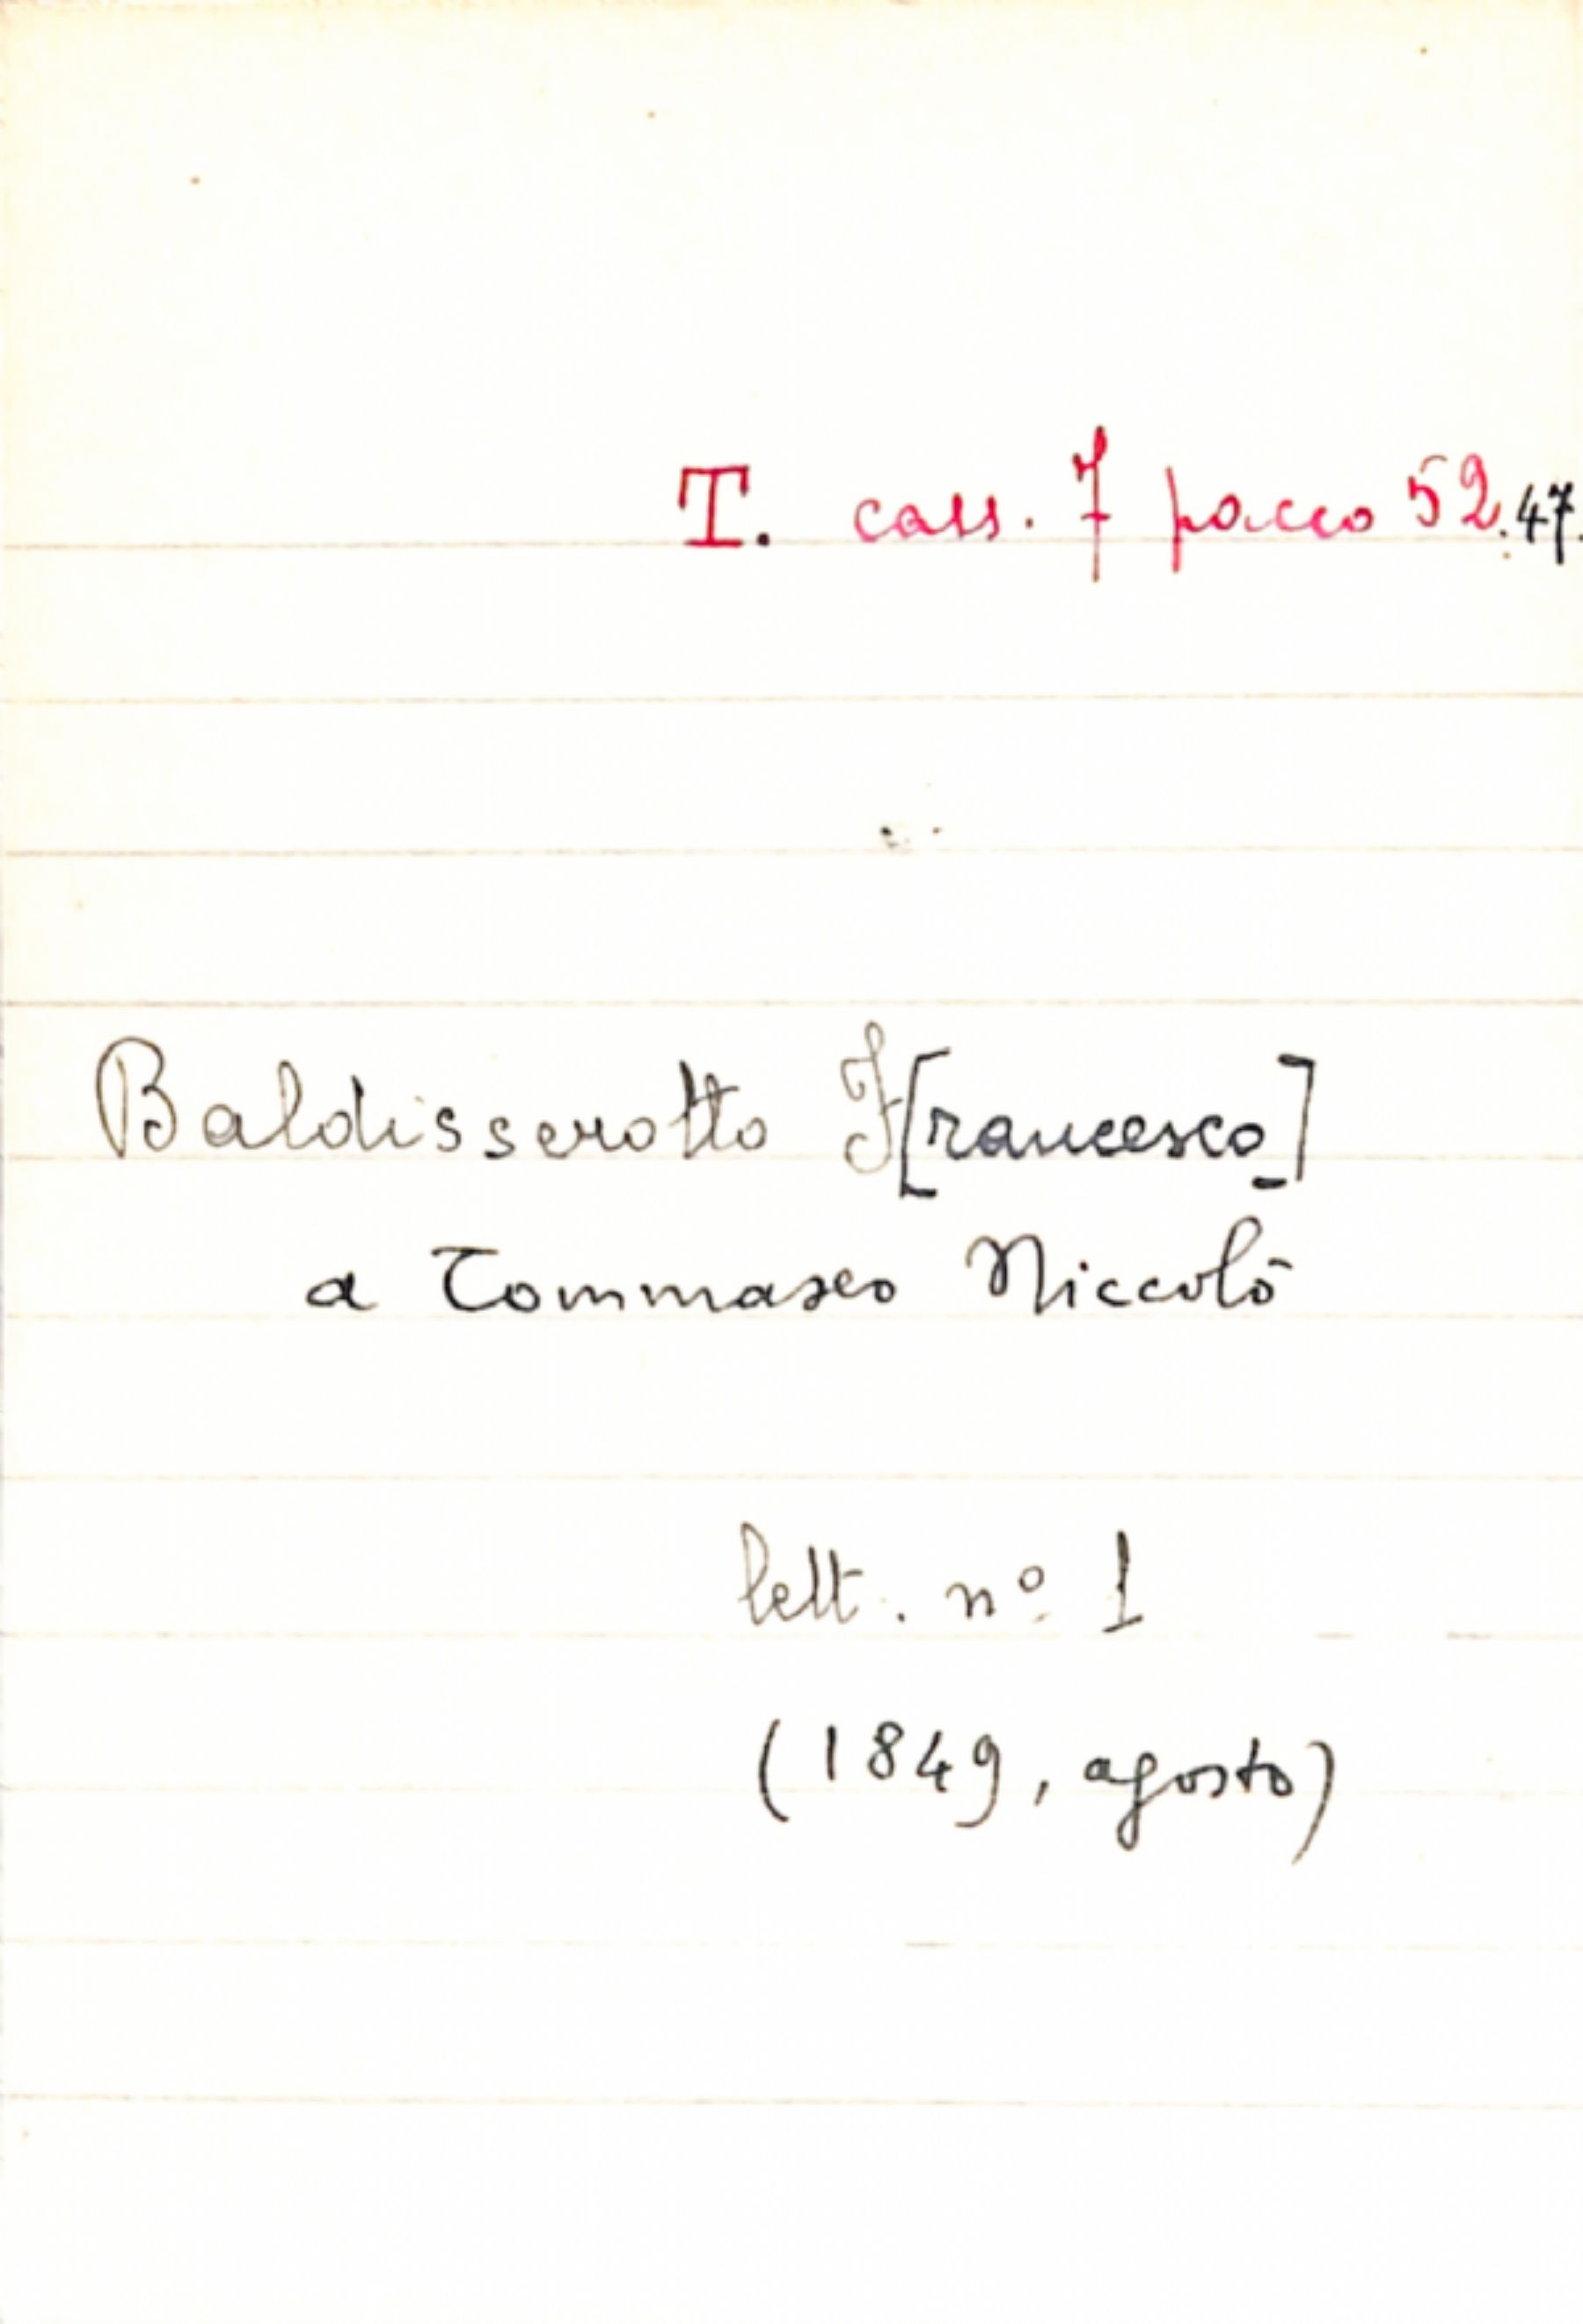 T. cass. 7 pacco 52.47.
Baldisserotto F[rancesco]
a Tommaseo Niccolò
lett. nº 1
(1849, agosto)